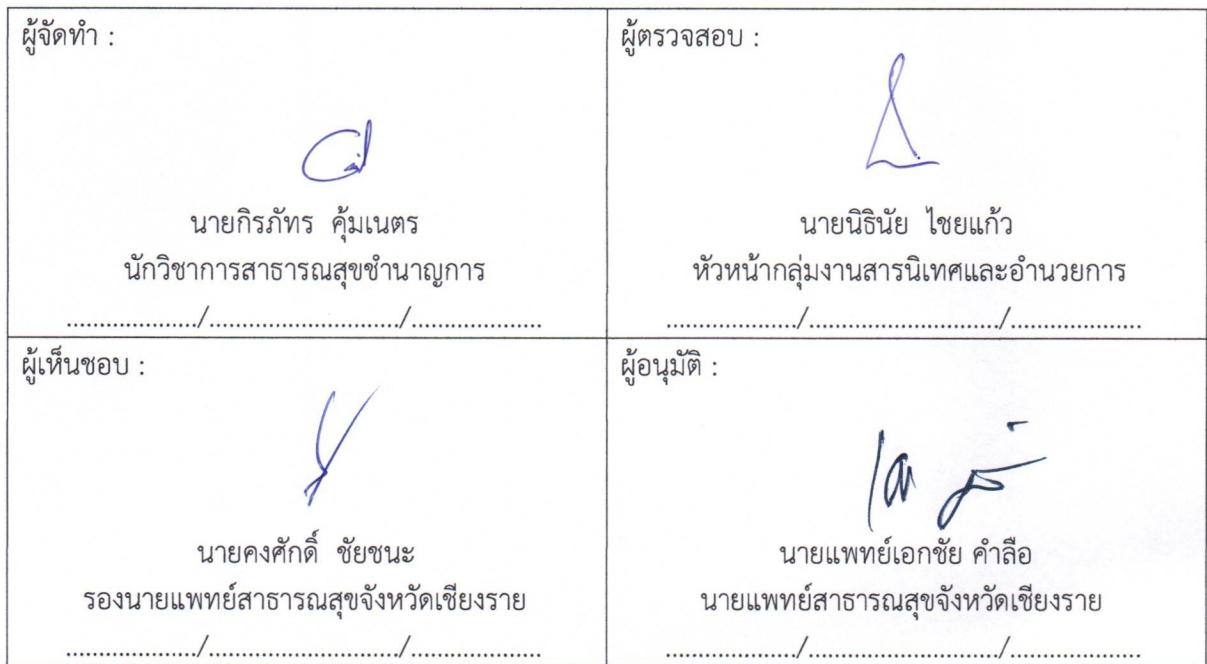 ผู้จัดทำ :
นายกิรภัทร คุ้มเนตร
นักวิชาการสาธารณสุขชำนาญการ
................../............................/...................
ผู้ตรวจสอบ :
นายนิธินัย ไชยแก้ว
หัวหน้ากลุ่มงานสารนิเทศและอำนวยการ
................../............................/...................
ผู้เห็นชอบ :
นายคงศักดิ์ ชัยชนะ
รองนายแพทย์สาธารณสุขจังหวัดเชียงราย
................../............................/...................
ผู้อนุมัติ :
นายแพทย์เอกชัย คำลือ
นายแพทย์สาธารณสุขจังหวัดเชียงราย
................../............................/...................